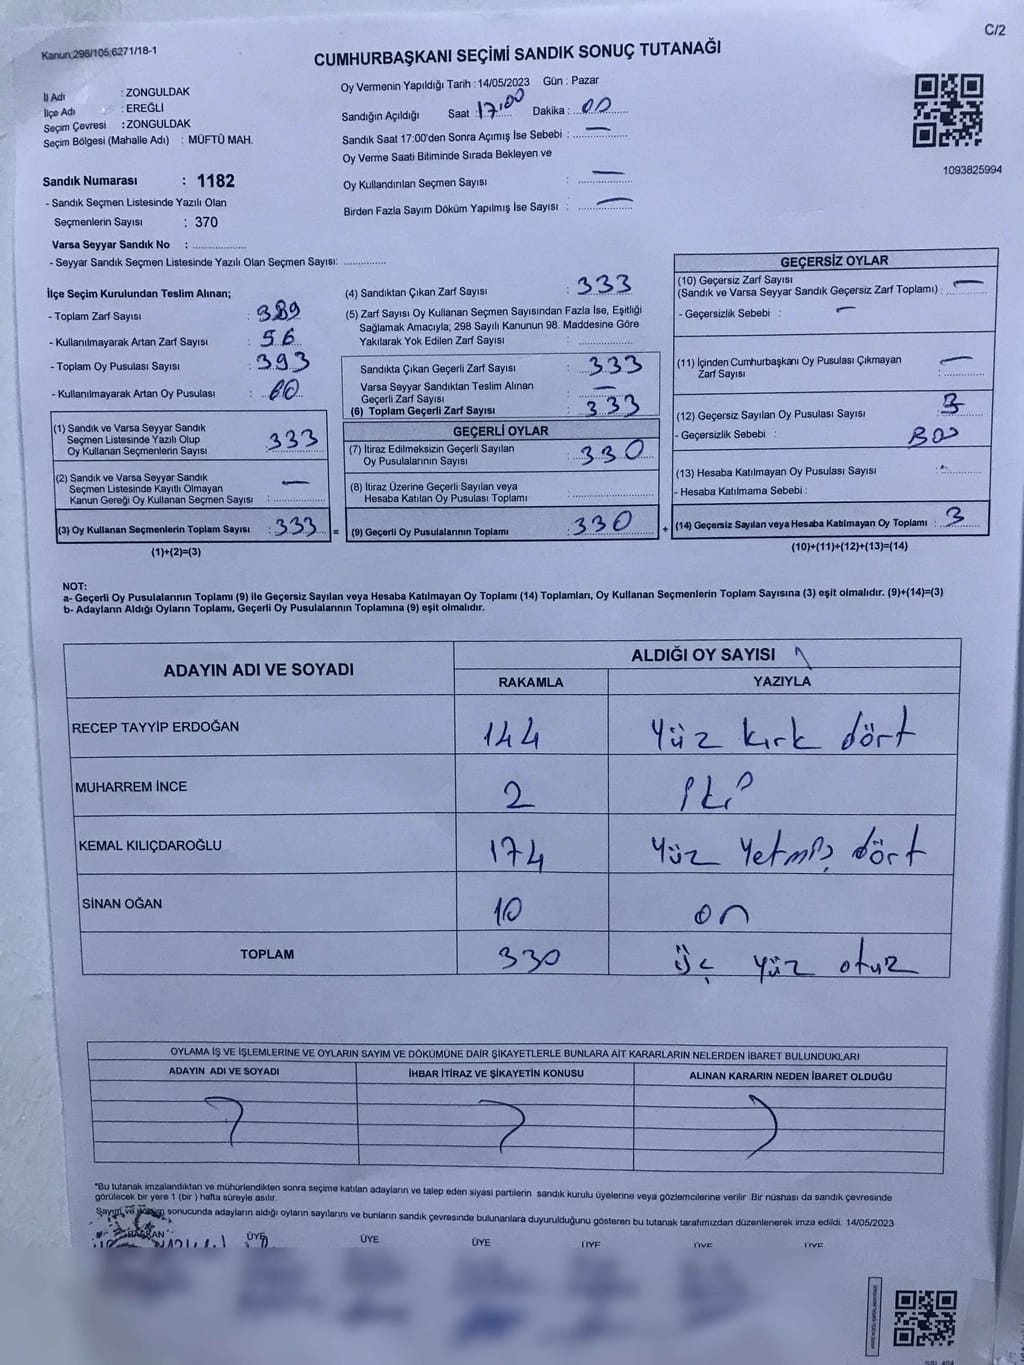 C/2
Kanun;298/105;6271/18-1
CUMHURBAŞKANI SEÇİMİ SANDIK SONUÇ TUTANAĞI
1093825994
İl Adı : ZONGULDAK
İlçe Adı : EREĞLİ
Seçim Çevresi : ZONGULDAK
Seçim Bölgesi (Mahalle Adı) : MÜFTÜ MAH.
Sandık Numarası : 1182
- Sandık Seçmen Listesinde Yazılı Olan
Seçmenlerin Sayısı : 370
Varsa Seyyar Sandık No :
- Seyyar Sandık Seçmen Listesinde Yazılı Olan Seçmen Sayısı:
Oy Vermenin Yapıldığı Tarih : 14/05/2023 Gün : Pazar
Sandığın Açıldığı Saat 17,00 Dakika : 00
Sandık Saat 17:00'den Sonra Açımış İse Sebebi : —
Oy Verme Saati Bitiminde Sırada Bekleyen ve
Oy Kullandırılan Seçmen Sayısı : —
Birden Fazla Sayım Döküm Yapılmış İse Sayısı : —
İlçe Seçim Kurulundan Teslim Alınan;
- Toplam Zarf Sayısı : 389
- Kullanılmayarak Artan Zarf Sayısı : 56
- Toplam Oy Pusulası Sayısı : 393
- Kullanılmayarak Artan Oy Pusulası : 60
(1) Sandık ve Varsa Seyyar Sandık
Seçmen Listesinde Yazılı Olup
Oy Kullanan Seçmenlerin Sayısı : 333
(2) Sandık ve Varsa Seyyar Sandık
Seçmen Listesinde Kayıtlı Olmayan
Kanun Gereği Oy Kullanan Seçmen Sayısı : —
(3) Oy Kullanan Seçmenlerin Toplam Sayısı : 333 =
(1)+(2)=(3)
(4) Sandıktan Çıkan Zarf Sayısı : 333
(5) Zarf Sayısı Oy Kullanan Seçmen Sayısından Fazla İse, Eşitliği
Sağlamak Amacıyla; 298 Sayılı Kanunun 98. Maddesine Göre
Yakılarak Yok Edilen Zarf Sayısı :
Sandıkta Çıkan Geçerli Zarf Sayısı : 333
Varsa Seyyar Sandıktan Teslim Alınan
Geçerli Zarf Sayısı : —
(6) Toplam Geçerli Zarf Sayısı : 333
GEÇERLİ OYLAR
(7) İtiraz Edilmeksizin Geçerli Sayılan
Oy Pusulalarının Sayısı : 330
(8) İtiraz Üzerine Geçerli Sayılan veya
Hesaba Katılan Oy Pusulası Toplamı :
(9) Geçerli Oy Pusulalarının Toplamı : 330 +
GEÇERSİZ OYLAR
(10) Geçersiz Zarf Sayısı
(Sandık ve Varsa Seyyar Sandık Geçersiz Zarf Toplamı) : —
- Geçersizlik Sebebi : —
(11) İçinden Cumhurbaşkanı Oy Pusulası Çıkmayan
Zarf Sayısı : —
(12) Geçersiz Sayılan Oy Pusulası Sayısı : 3
- Geçersizlik Sebebi :
(13) Hesaba Katılmayan Oy Pusulası Sayısı :
- Hesaba Katılmama Sebebi :
(14) Geçersiz Sayılan veya Hesaba Katılmayan Oy Toplamı : 3
(10)+(11)+(12)+(13)=(14)
NOT:
a- Geçerli Oy Pusulalarının Toplamı (9) ile Geçersiz Sayılan veya Hesaba Katılmayan Oy Toplamı (14) Toplamları, Oy Kullanan Seçmenlerin Toplam Sayısına (3) eşit olmalıdır. (9)+(14)=(3)
b- Adayların Aldığı Oyların Toplamı, Geçerli Oy Pusulalarının Toplamına (9) eşit olmalıdır.
ADAYIN ADI VE SOYADI
ALDIĞI OY SAYISI
RAKAMLA YAZIYLA
RECEP TAYYİP ERDOĞAN 144 Yüz kırk dört
MUHARREM İNCE 2 İki
KEMAL KILIÇDAROĞLU 174 Yüz Yetmiş dört
SİNAN OĞAN 10 on
TOPLAM 330 üç yüz otuz
OYLAMA İŞ VE İŞLEMLERİNE VE OYLARIN SAYIM VE DÖKÜMÜNE DAİR ŞİKAYETLERLE BUNLARA AİT KARARLARIN NELERDEN İBARET BULUNDUKLARI
ADAYIN ADI VE SOYADI İHBAR İTİRAZ VE ŞİKAYETİN KONUSU ALINAN KARARIN NEDEN İBARET OLDUĞU
*Bu tutanak imzalandıktan ve mühürlendikten sonra seçime katılan adayların ve talep eden siyasi partilerin sandık kurulu üyelerine veya gözlemcilerine verilir .Bir nüshası da sandık çevresinde
görülecek bir yere 1 (bir ) hafta süreyle asılır.
Sayım ve döküm sonucunda adayların aldığı oyların sayılarını ve bunların sandık çevresinde bulunanlara duyurulduğunu gösteren bu tutanak tarafımızdan düzenlenerek imza edildi. 14/05/2023
BAŞKAN ÜYE ÜYE ÜYE ÜYE ÜYE ÜYE